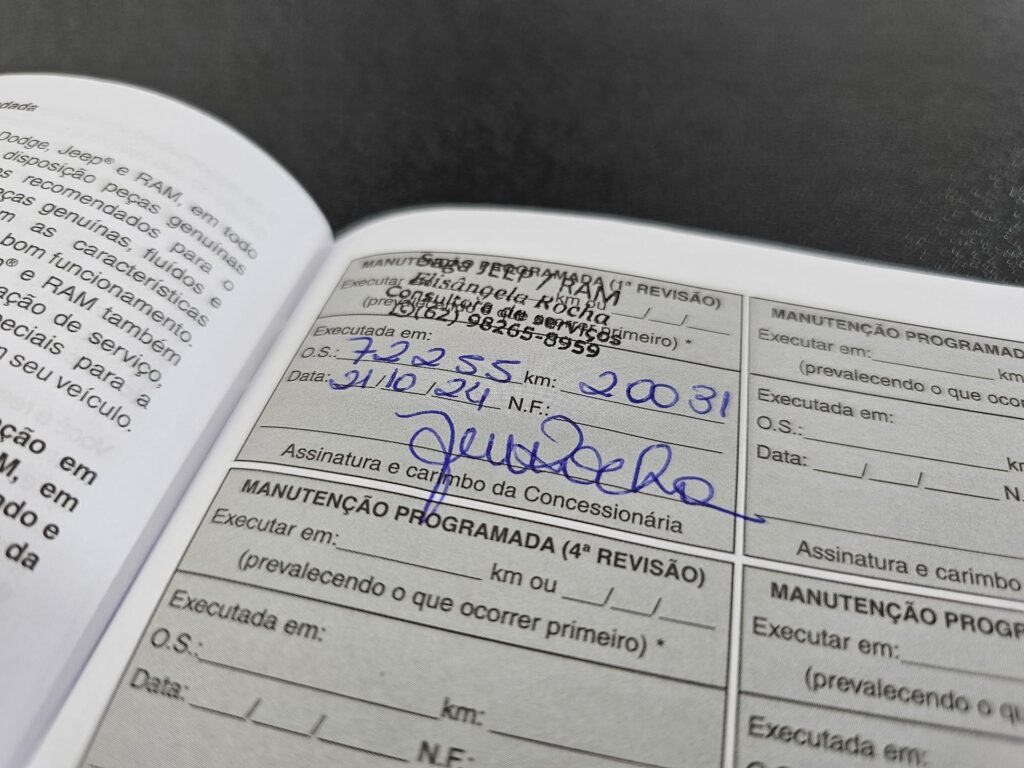 Dodge, Jeep® e RAM, em todo
disposição peças genuínas
recomendados para o
genuínas, fluídos e
as características
bom funcionamento.
® e RAM também
de serviço,
para a
seu veículo.
em
em
e
da
MANUTENÇÃO PROGRAMADA (1ª REVISÃO)
Saga JEEP / RAM
Executar em: km ou / /
Elisângela Rocha
(prevalecendo o que ocorrer primeiro) *
Consultora de serviços
(62) 98265-8959
Executada em:
O.S.: 72255 km: 20031
Data: 21/10/24 N.F.:
Assinatura e carimbo da Concessionária
MANUTENÇÃO PROGRAMADA (4ª REVISÃO)
Executar em: km ou / /
(prevalecendo o que ocorrer primeiro) *
Executada em:
O.S.:
km:
Data: / /
N.F.:
MANUTENÇÃO
Executar em: km
(prevalecendo o que
Executada em:
O.S.:
Data: / /
Assinatura e carimbo
MANUTENÇÃO
Executar em:
(prevalecendo o
Executada em: